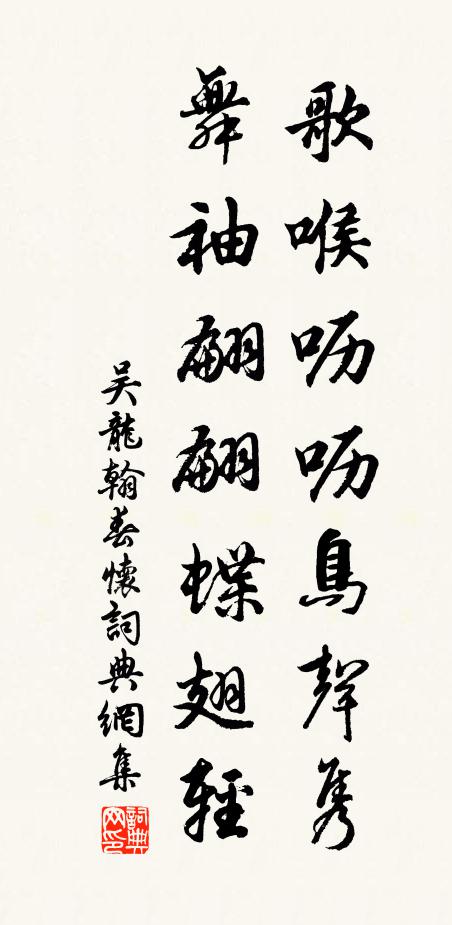 歌喉呖呖鳥聲隽
舞袖翩翩蝶翅輕
吴龍翰春懷詞典網集
詞典网印